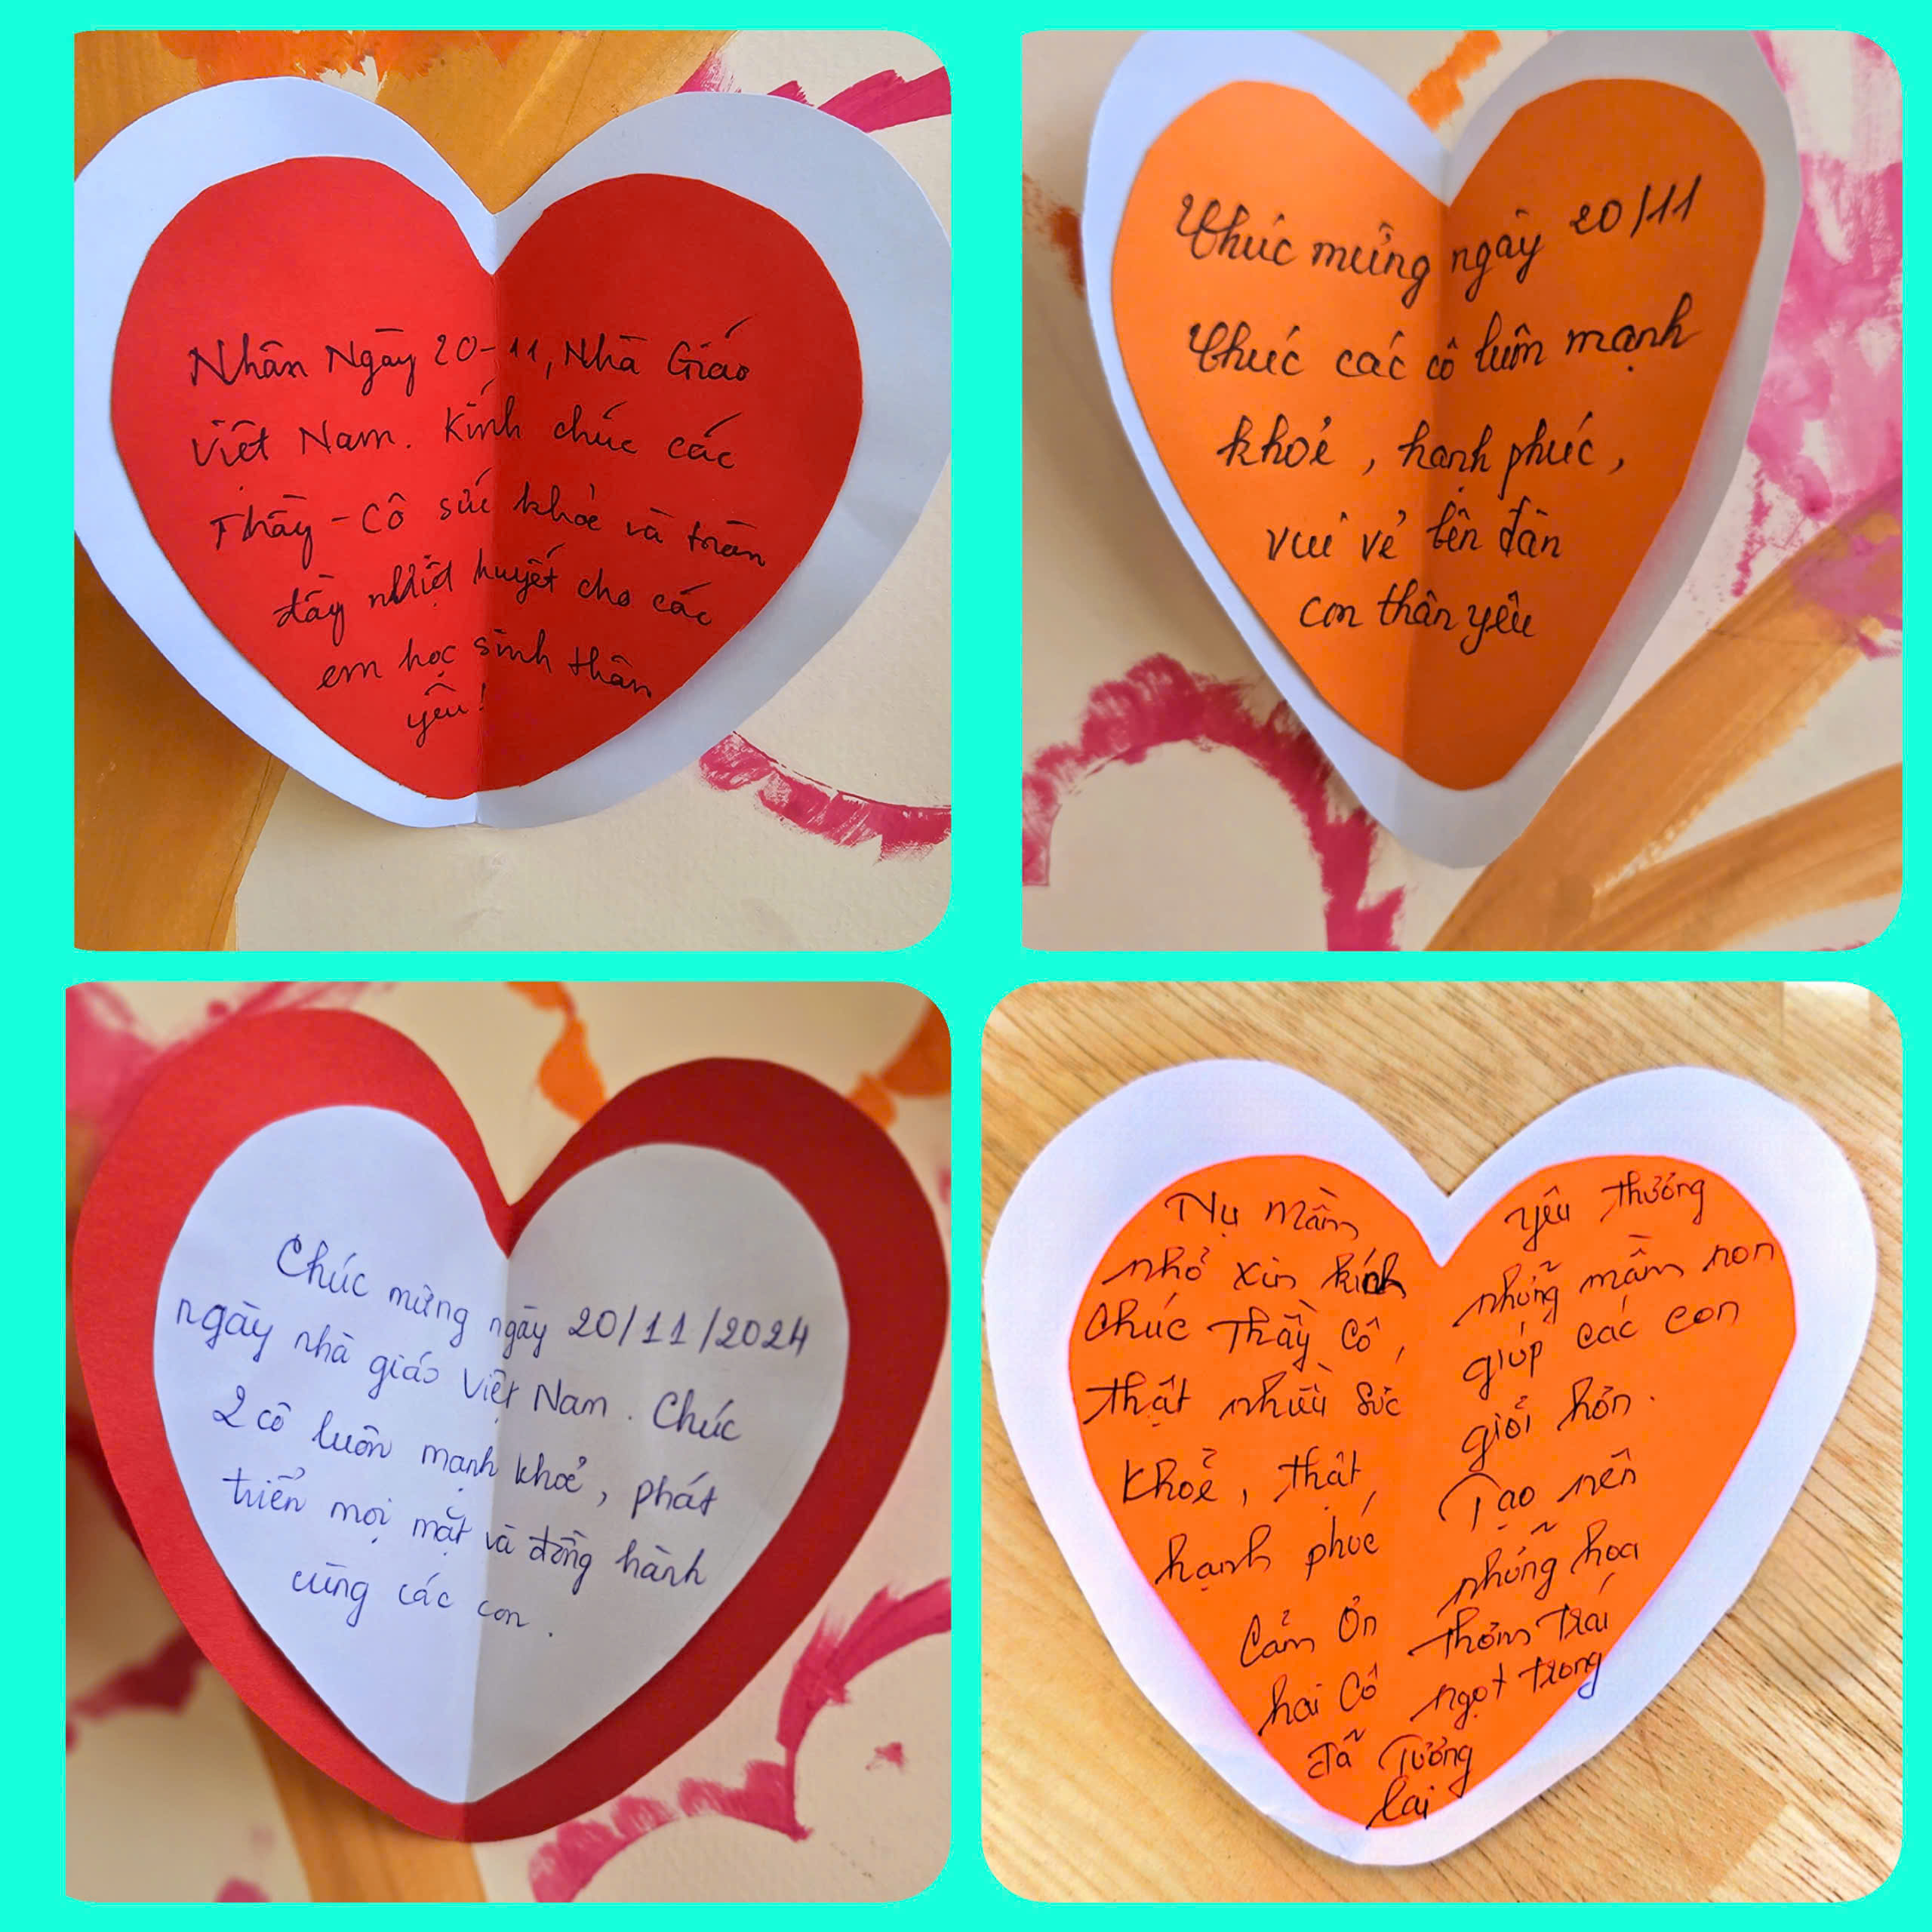 Nhân Ngày 20-11, Nhà Giáo
Việt Nam. Kính chúc các
Thầy - Cô sức khỏe và tràn
đầy nhiệt huyết cho các
em học sinh thân
yêu!
Chúc mừng ngày 20/11
Chúc các cô luôn mạnh
khoẻ, hạnh phúc,
vui vẻ bên đàn
con thân yêu
Chúc mừng ngày 20/11/2024
ngày nhà giáo Việt Nam. Chúc
2 cô luôn mạnh khoẻ, phát
triển mọi mặt và đồng hành
cùng các con.
Nụ mầm
nhỏ xin kính
chúc Thầy Cô,
thật nhiều sức
khoẻ, thật
hạnh phúc
Cảm ơn
hai Cô
đã
yêu thương
những mầm non
giúp các con
giỏi hơn.
Tạo nên
những hoa
thơm trái
ngọt trong
tương
lai